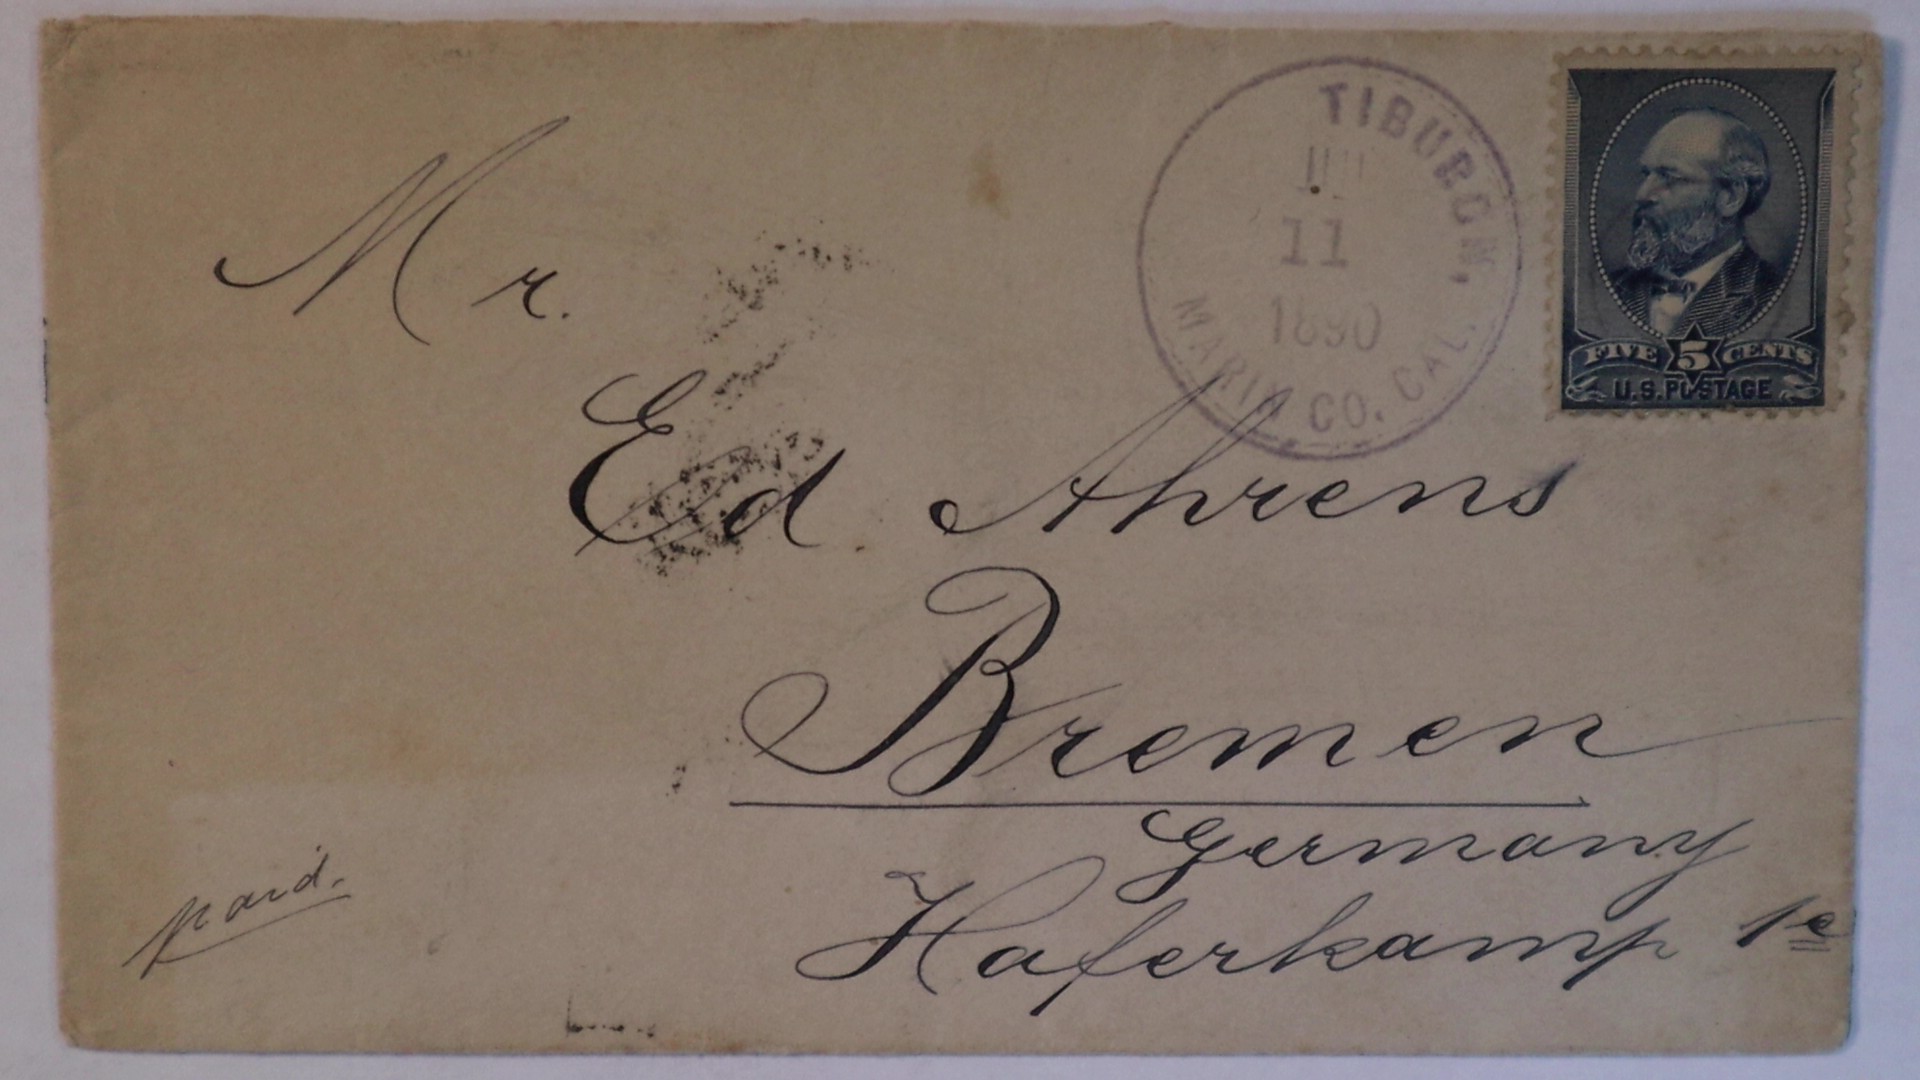 TIBURON,
11
1890
MARIN CO. CAL.
FIVE 5 CENTS
U.S. POSTAGE
Mr.
Ed Ahrens
Bremen
Germany
Haferkamp 1e
paid.